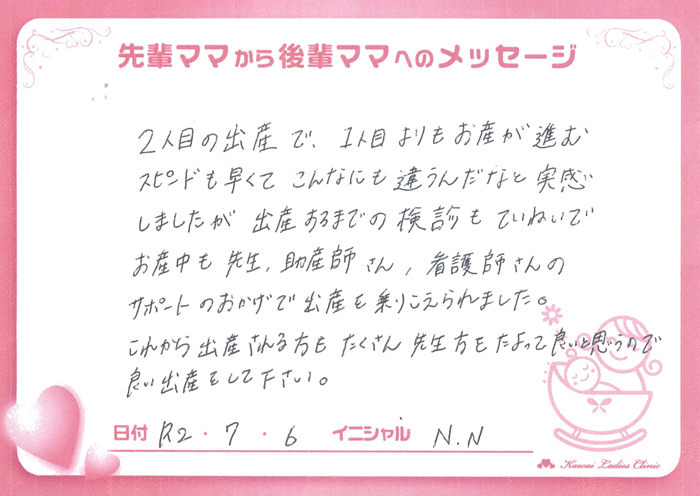 先輩ママから後輩ママへのメッセージ
2人目の出産で、1人目よりもお産が進む
スピードも早くて こんなにも違うんだなと実感
しましたが 出産するまでの検診もていねいで
お産中も先生、助産師さん、看護師さんの
サポートのおかげで出産を乗りこえられました。
これから出産される方も たくさん先生方をたよって良いと思うので
良い出産をして下さい。
日付 R2・7・6 イニシャル N.N
Kawai Ladies Clinic